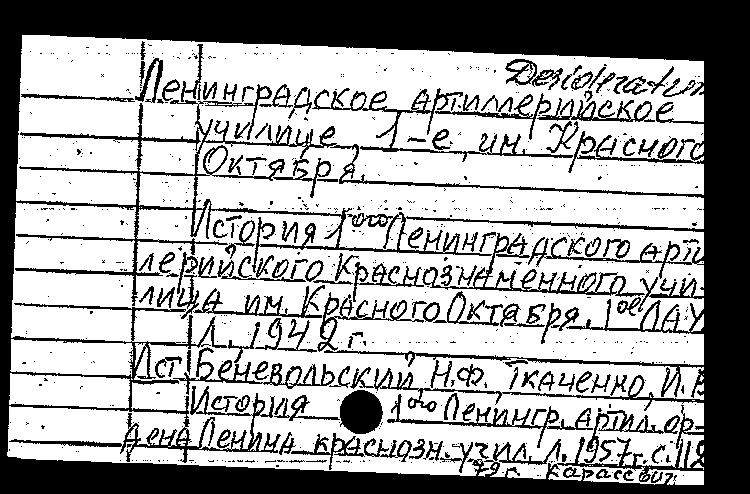 Desideratum
Ленинградское артиллерийское
училище, 1-е, им. Красного
Октября.
История 1ого Ленинградского арти
лерийского Краснознаменного учи-
лища им. Красного Октября. 1ое ЛАУ
Л., 1942 г.
Ист. Беневольский, Н.Ф., Ткаченко, И.В
История 1ого Ленингр. артил. ор-
дена Ленина краснозн. учил. Л. 1957 г. с. 112
79 г. Карасевич